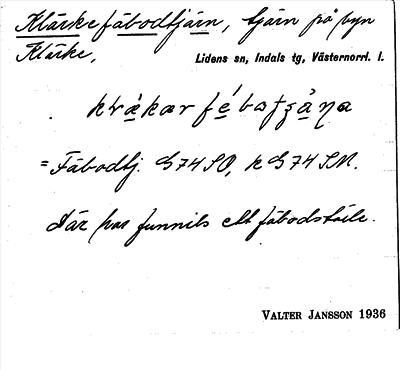 Klärke fäbodtjärn, tjärn på byn
Klärke,
Lidens sn, Indals tg, Västernorrl. l.
= Fäbodtj. G74SO, k G74SM.
Där har funnits ett fäbodställe.
VALTER JANSSON 1936